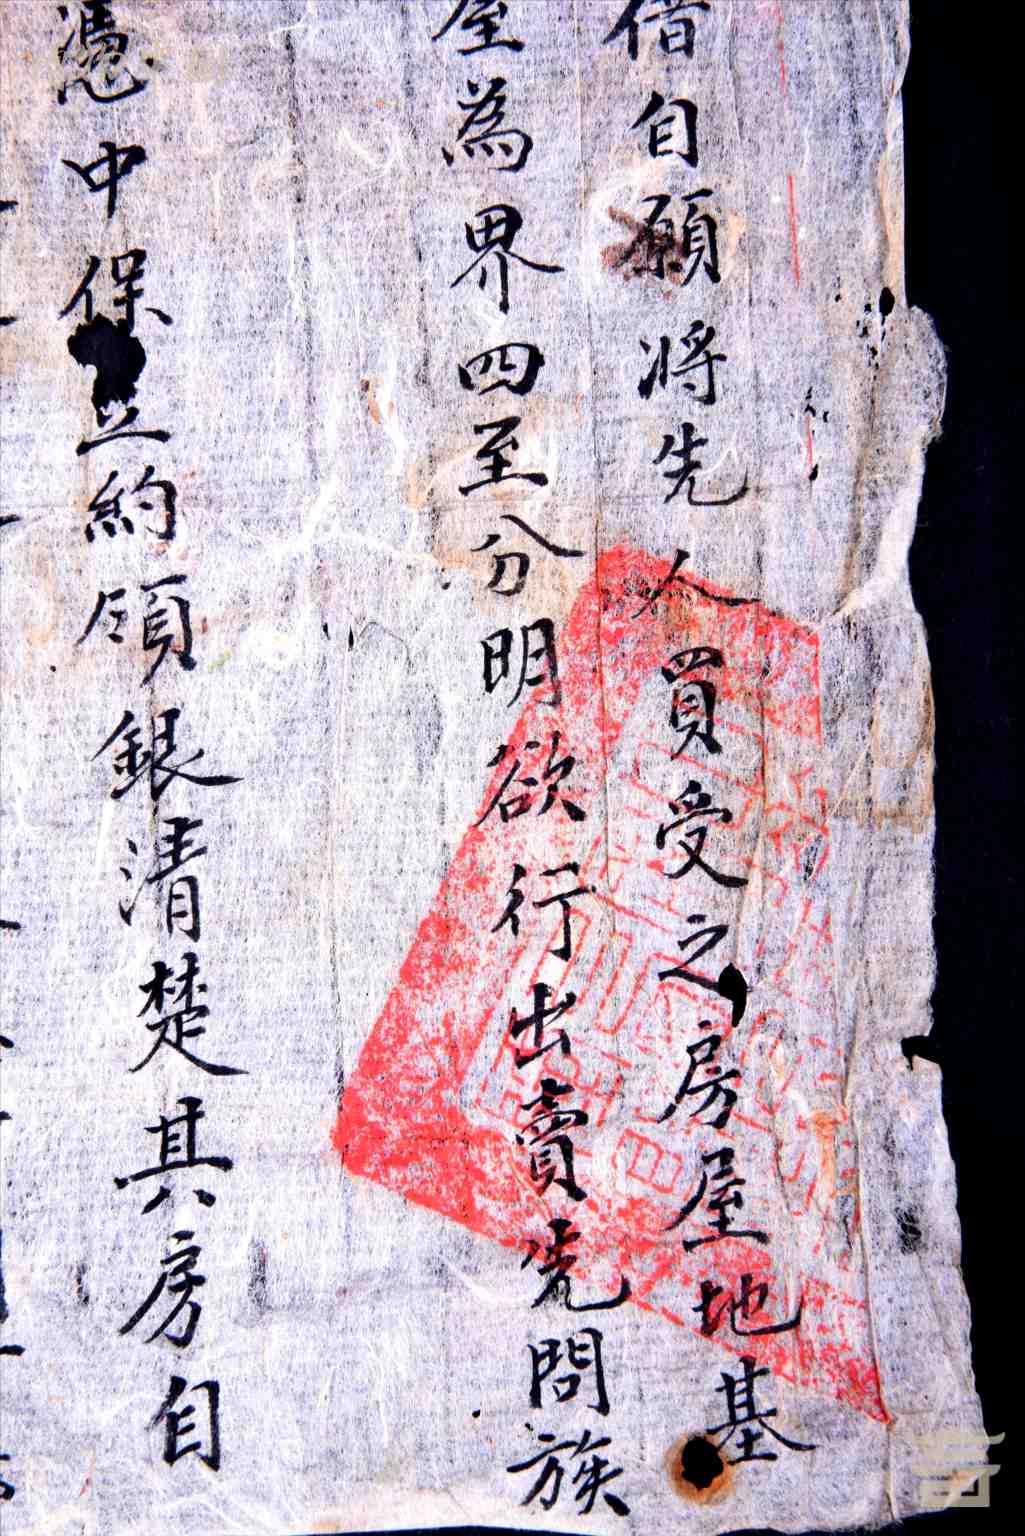 借自願將先人買受之房屋地基
屋為界四至分明欲行出賣先問族
憑中保立約領銀清楚其房自